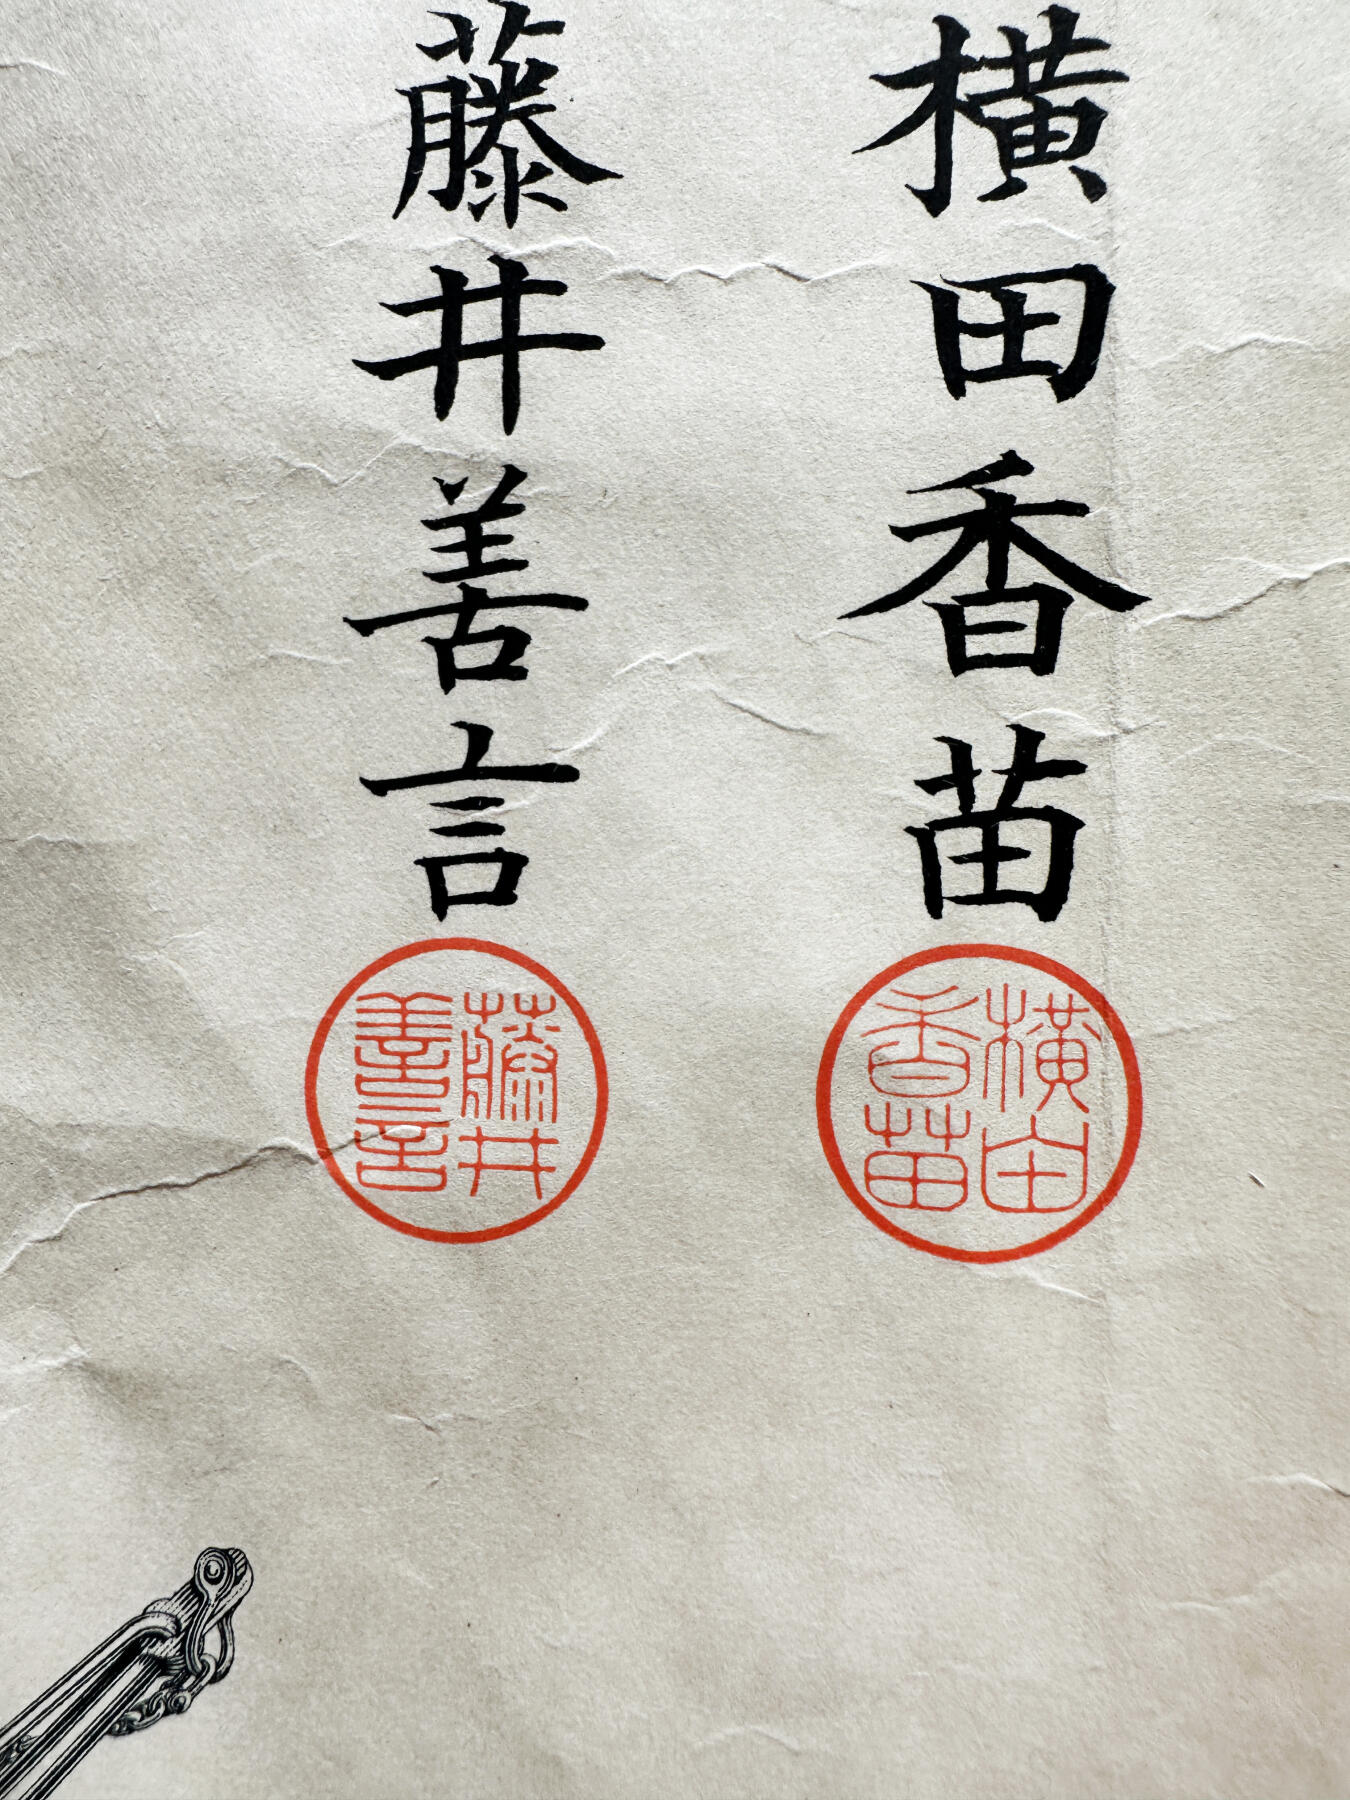 横田香苗
藤井善言
横田
香苗
藤井
善言